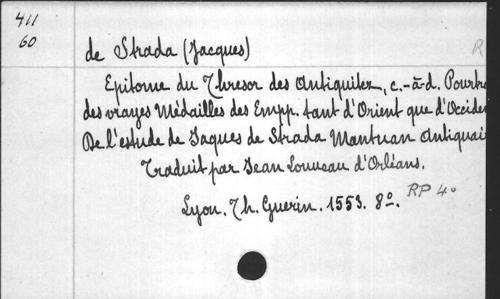 411
60
de Strada (Jacques)
R
Epitome du Thresor des Antiquitez, c.-à-d. Pourtra
des vrayes Médailles des Empp. tant d'Orient que d'Occiden
De l'estude de Jaques de Strada Mantuan Antiquai
Traduit par Jean Louveau d'Orléans.
Lyon. Th. Guerin. 1553. 8º. RP 4º